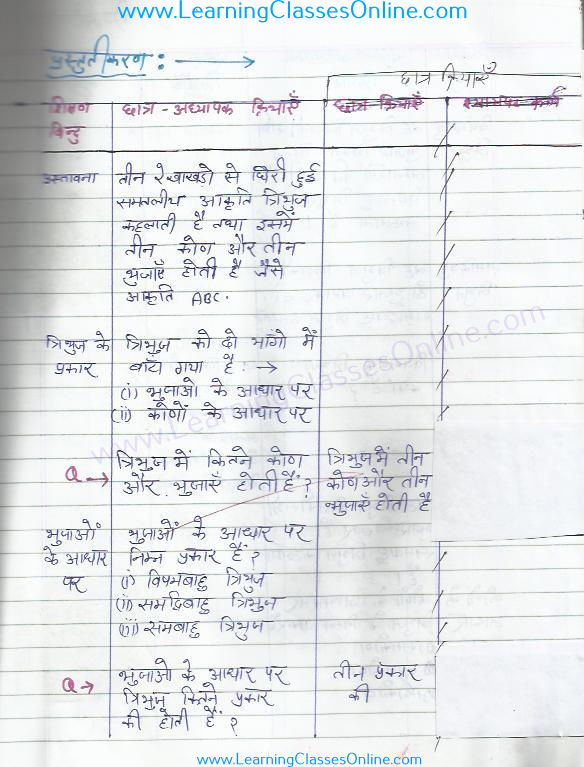 www.LearningClassesOnline.com
प्रस्तुतीकरण : →
छात्र क्रियाएँ
शिक्षण बिन्दु
छात्र - अध्यापक क्रियाएँ
छात्र क्रियाएँ
श्यामपट कार्य
प्रस्तावना
तीन रेखाखंडो से घिरी हुई
समतलीय आकृति त्रिभुज
कहलाती है तथा इसमें
तीन कोण और तीन
भुजाएँ होती है जैसे
आकृति ABC.
त्रिभुज के
प्रकार
त्रिभुज को दो भागो में
बांटा गया है :- →
(i) भुजाओ के आधार पर
(ii) कोणों के आधार पर
Q →
त्रिभुज में कितने कोण
और भुजाएँ होती हैं ?
त्रिभुज में तीन
कोण और तीन
भुजाएँ होती है
भुजाओं
के आधार
पर
भुजाओं के आधार पर
निम्न प्रकार हैं ?
(i) विषमबाहु त्रिभुज
(ii) समद्विबाहु त्रिभुज
(iii) समबाहु त्रिभुज
Q →
भुजाओ के आधार पर
त्रिभुज कितने प्रकार
की होती हैं ?
तीन प्रकार
की
www.LearningClassesOnline.com
www.LearningClassesOnline.com